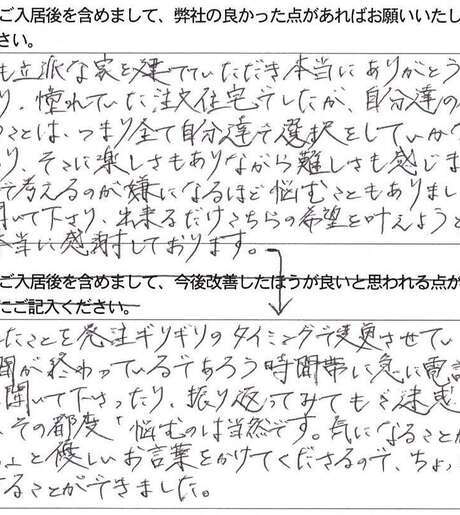 ご入居後を含めまして、弊社の良かった点があればお願いいたし
さい。
も立派な家を建てていただき本当にありがとう
り、憧れていた注文住宅でしたが、自分達の
ことは、つまり全て自分達で選択をしていかな
り、そこに楽しさもありながら難しさも感じま
で考えるのが嫌になるほど悩むこともありまし
聞いて下さり、出来るだけこちらの希望を叶えようと
本当に感謝しております。
ご入居後を含めまして、今後改善したほうが良いと思われる点が
にご記入ください。
たことを発注ギリギリのタイミングで変更させてい
間が終わっているであろう時間帯に急に電話
聞いて下さったり、振り返ってみてもご迷惑
、その都度「悩むのは当然です。気になることが
。」と優しいお言葉をかけてくださるので、ちょっ
することができました。